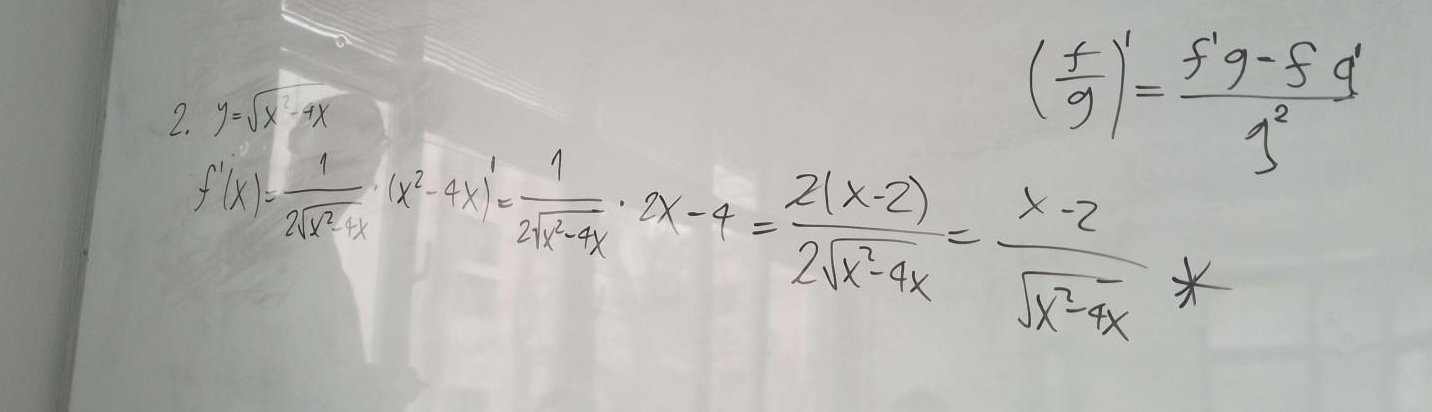 (f/g)' = (f'g - f g')/g²
2. y = √(x² - 4x)
f'(x) = 1/(2√(x² - 4x)) · (x² - 4x)' = 1/(2√(x² - 4x)) · 2x - 4 = 2(x - 2)/(2√(x² - 4x)) = (x - 2)/√(x² - 4x) *